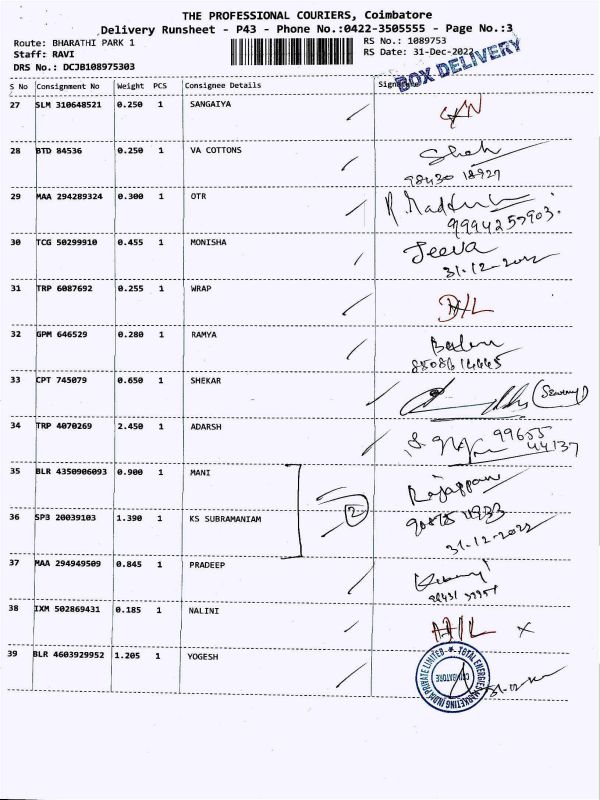 THE PROFESSIONAL COURIERS, Coimbatore
Delivery Runsheet - P43 - Phone No.:0422-3505555 - Page No.:3
Route: BHARATHI PARK 1
RS No.: 1089753
Staff: RAVI
RS Date: 31-Dec-2022
DRS No.: DCJB108975303
BOX DELIVERY
S No Consignment No Weight PCS Consignee Details
27 SLM 310648521 0.250 1 SANGAIYA
28 BTD 84536 0.250 1 VA COTTONS
Shah
98430 18927
29 MAA 294289324 0.300 1 OTR
30 TCG 50299910 0.455 1 MONISHA
Jeeva
31-12-2022
31 TRP 6087692 0.255 1 WRAP
D/L
32 GPM 646529 0.280 1 RAMYA
33 CPT 745079 0.650 1 SHEKAR
34 TRP 4070269 2.450 1 ADARSH
99655
44137
35 BLR 4350906093 0.900 1 MANI
Rajappan
2
36 SP3 20039103 1.390 1 KS SUBRAMANIAM
31-12-2022
37 MAA 294949509 0.845 1 PRADEEP
38 IXM 502869431 0.185 1 NALINI
39 BLR 4603929952 1.205 1 YOGESH
TOTAL ENERGIES MARKETING INDIA PRIVATE LIMITED
COIMBATORE